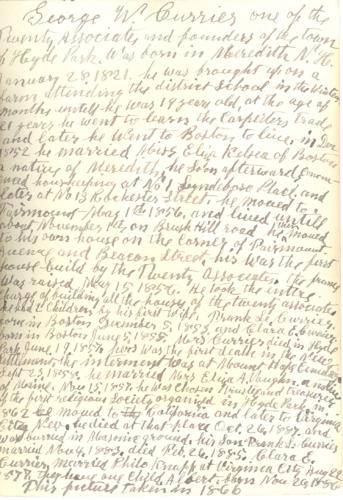 George W. Currier one of the
Twenty Associates and founders of the town
of Hyde Park. Was born in Meredith N. H.
January 28, 1821. he was brought up on a
farm attending the district school in the Winter
months untill he was 18 years old, at the age of
21 years he went to learn the Carpenters trade
and later he went to Boston to live, in
1852 he married Miss Eliza Kelsea of Boston
a native of Meredith, he soon afterward commen
ced housekeeping at No 1 Lyndeboro Place, and
later at No 13 Rochester Street. he moved to
Fairmount May 1st 1856, and lived untill
about November 1st, on Brush Hill road then he moved
to his own house on the corner of Fairmount
Avenue and Beacon Street, his was the first
house built by the Twenty Associates. The frame
was raised May 15 1856. He took the entire
charge of building all the houses of the twenty associates
he had 2 Children by his first wife. Frank L. Currier,
born in Boston December 5, 1853 and Clara E. Currier
born in Boston June 5 1855. Mrs Currier died in Hyde
Park June 19, 1857. hers was the first death in the New
Settlement the interment was at Mount Hope Cemetery
Sept 23, 1858. he married Mrs Eliza A. Vaughn, a native
of Maine. Nov 15, 1857. he was chosen Trustee and Treasurer
of the first religious Society organised in Hyde Park. in
1862 he moved to California and later to Virginia
City Nev. he died at that place Oct. 26, 1882, and
was burried in Masonic ground. his Son Frank L. Currier
married Nov 4, 1883. died Feb. 26, 1885. Clara E.
Currier, married Philo Knapp at Virginia City Aug 22
1878. they have one child Albert. born Nov 20, 1886
This picture taken in 1866